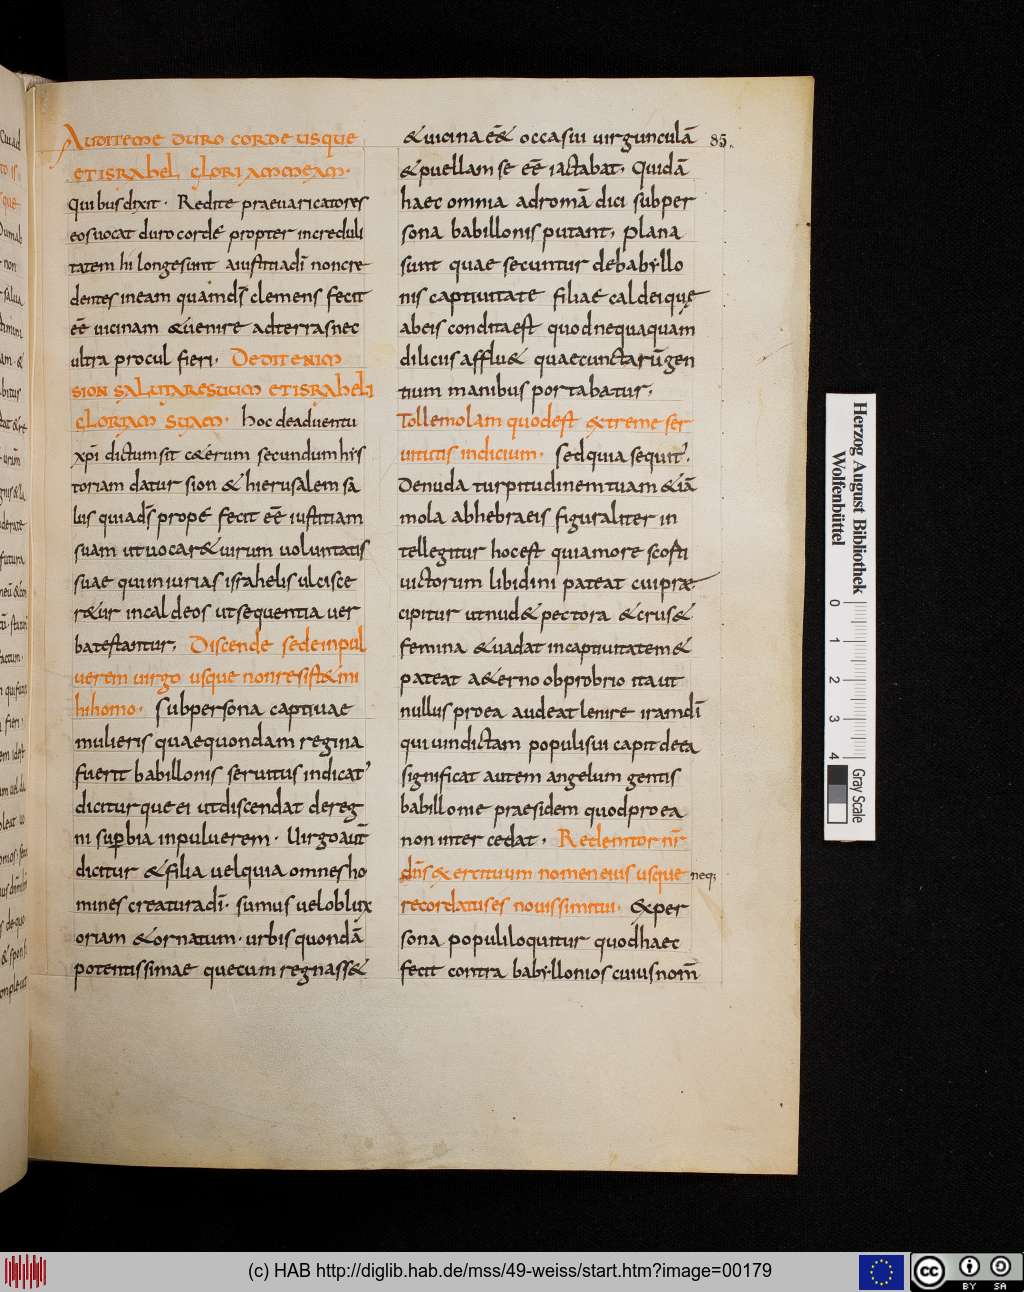 Audite me duro corde usque
et israhel gloriam meam.
quibus dixit. Redite praevaricatores
eos vocat duro corde propter increduli
tatem hi longe sunt a iustitia dī non cre
dentes in eam quam ds clemens fecit
eē vicinam & venire ad terras nec
ultra procul fieri. Dedit enim
sion salutare suum et israheli
gloriam suam. hoc de adventu
xpī dictum sit ceterum secundum his
toriam datur sion & hierusalem sa
lus quia ds prope fecit eē iustitiam
suam ut vocar& virum voluntatis
suae qui iniurias israhelis ulcisce
r&ur in caldeos ut sequentia ver
ba testantur; Discende sede in pul
verem virgo usque non resist& mi
hi homo. sub persona captivae
mulieris quae quondam regina
fuerit babillonis servitus indicat'
diciturque ei ut discendat de reg
ni superbia in pulverem. Virgo aut
dicitur & filia vel quia omnes ho
mines creatura dī sumus vel ob lux
oriam & ornatum. urbis quondā
potentissimae que cum regnass&
& vicina eē& occasui virgunculā
& puellam se eē iactabat. Quidā
haec omnia ad romā dici sub per
sona babillonis putant; plana
sunt quae secuntur de babyllo
nis captivitate filiae caldeique
ab eis condita est quod nequaquam
dilicus afflu& quae cunctarū gen
tium manibus portabatur;
Tolle molam quod est extreme ser
vitutis indicium. sed quia sequit'.
Denuda turpitudinem tuam & iā
mola ab hebraeis figuraliter in
tellegitur hoc est qui amore scorti
victorum libidini pateat cui prae
cipitur ut nud& pectora & crus&
femina & vadat in captivitatem &
pateat aeterno obprobrio ita ut
nullus pro ea audeat lenire iram dī
qui vindictam populi sui capit de ea
significat autem angelum gentis
babillonie praesidem quod pro ea
non inter cedat. Redemtor nr
dns exercituum nomen eius usque
neq;
recordatus es novissimi tui. Ex per
sona populi loquitur quod haec
fecit contra babyllonios cuius nom
85.
Herzog August Bibliothek
Wolfenbüttel
0 1 2 3 4
Gray Scale
(c) HAB http://diglib.hab.de/mss/49-weiss/start.htm?image=00179
cc
BY SA